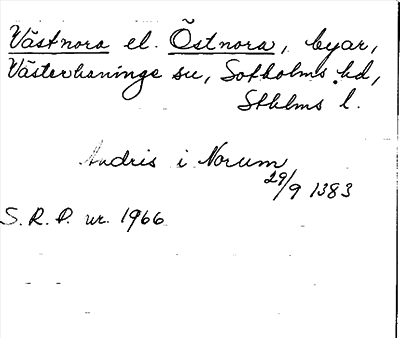 Västnora el. Östnora, byar,
Västerhaninge sn, Sotholms hd,
Sthlms l.
Andris i Norum
29/9 1383
S.R.P. nr. 1966